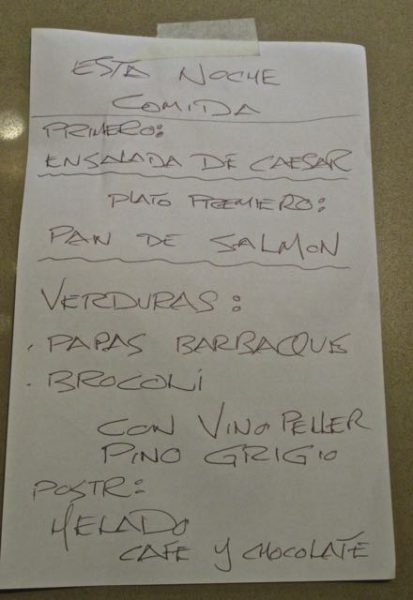 ESTA NOCHE
COMIDA
PRIMERO:
ENSALADA DE CAESAR
PLATO PREMIERO:
PAN DE SALMON
VERDURAS:
. PAPAS BARBAQUE
. BROCOLI
CON VINO PELLER
PINO GRIGIO
POSTR:
HELADO
CAFE Y CHOCOLATE